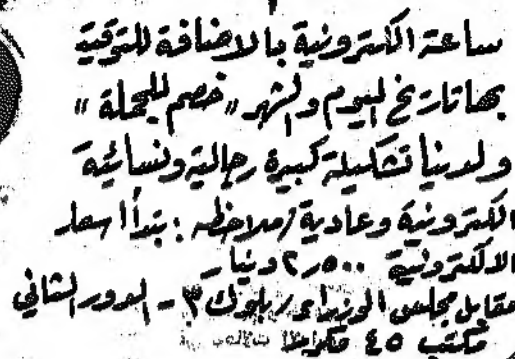 ساعة الكترونية بالاضافة للتوقيت
بها تاريخ اليوم والشهر "خصم للجملة"
ولدينا تشكيلة كبيرة رجالية ونسائية
الكترونية وعادية / ملاحظه : تبدأ اسعار
الالكترونية ٢٫٥٠٠ دينار
مقابل مجلس الوزراء / بلوك ٣ - الدور الثاني
مكتب ٤٥